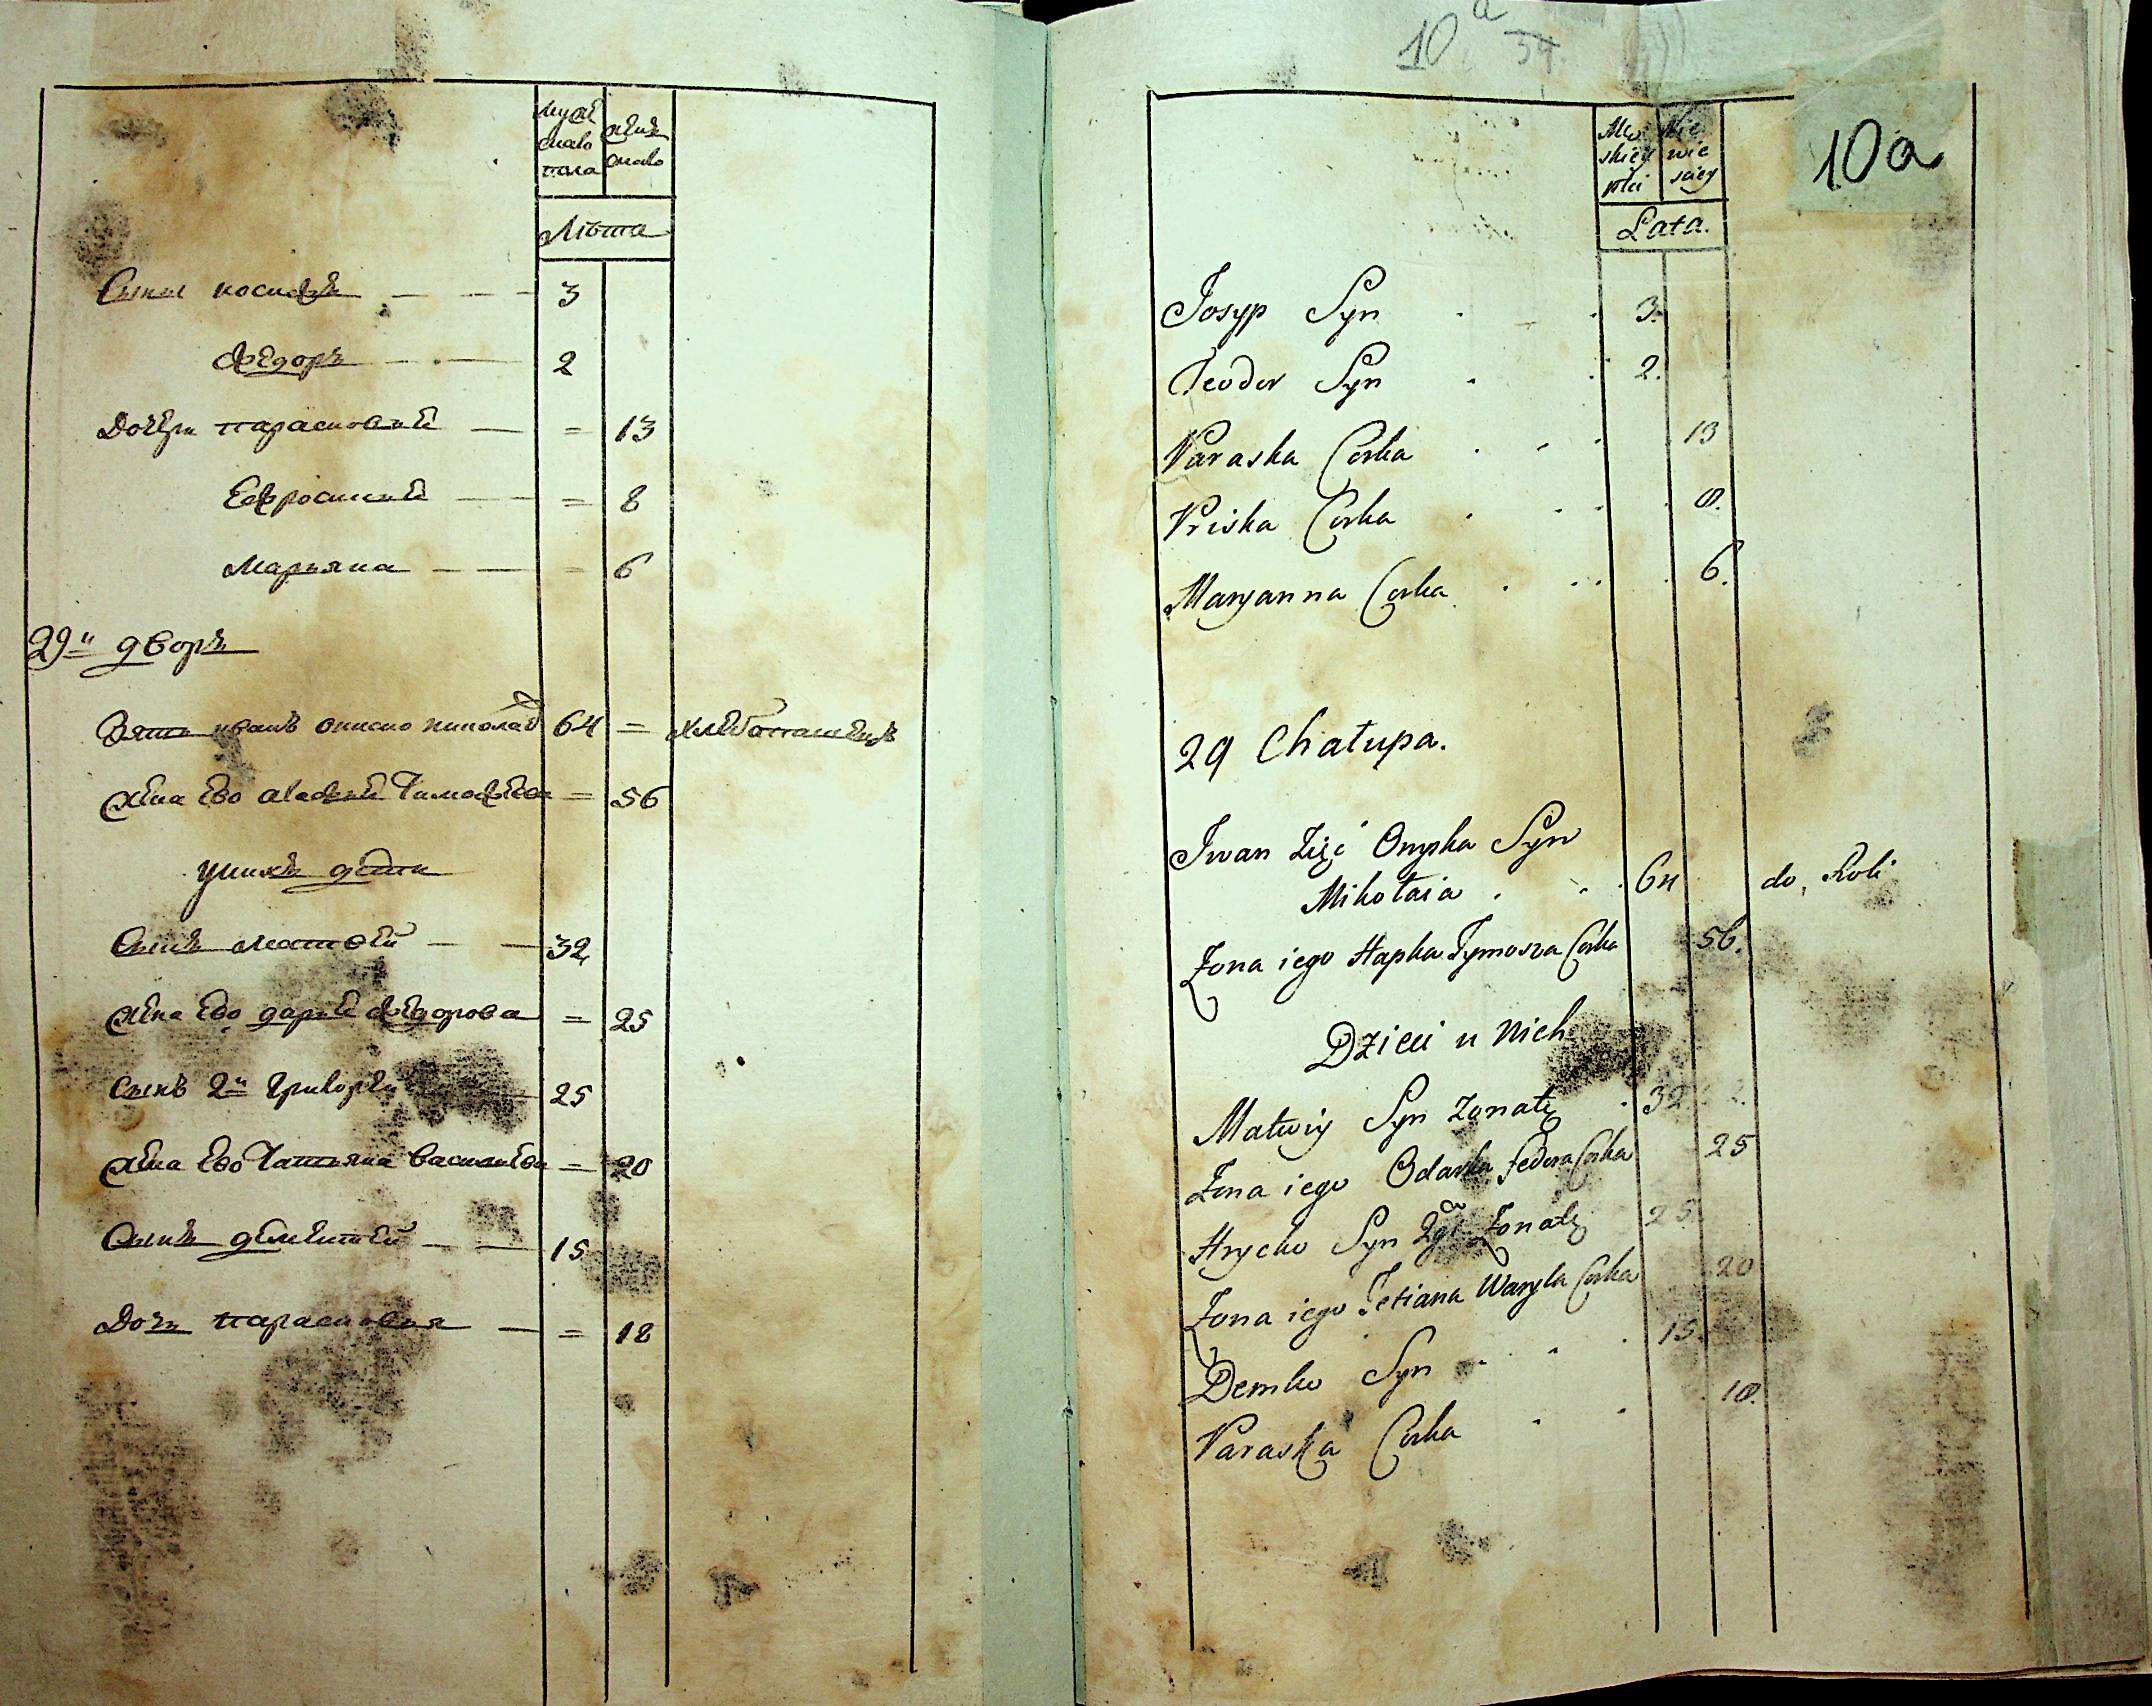 мужеска пола
женска
Лѣта
Сынъ иосифъ 3
Федоръ 2
Дочери парасковия = 13
Ефросиния = 8
Марьяна = 6
29й дворъ
Зять иванъ описко николаев 64 = хлебопашецъ
жена ево агафия Тимофеева = 56
у нихъ дети
Сынъ матвей 32
жена ево дария федорова = 25
Сынъ 2й григорей 25
жена ево Татьяна васильева = 20
Сынъ дементей 15
Дочь парасковия = 18
10 a
10a
Męskiey płci
Lata.
Josyp Syn 3.
Teodor Syn 2.
Paraska Corka 13
Priska Corka 8.
Maryanna Corka 6.
29 Chałupa.
Iwan Zięć Onyska Syn
Mikołaia 64 do Roli
Zona iego Hapka Tymosza Corka 56.
Dzieci u nich
Matwiy Syn zonaty 32
Zona iego Odarka Fedora Corka 25
Hrycko Syn 2gi Zonaty 25
Zona iego Tetiana Wasyla Corka 20
Demko Syn 15.
Paraska Corka 18.